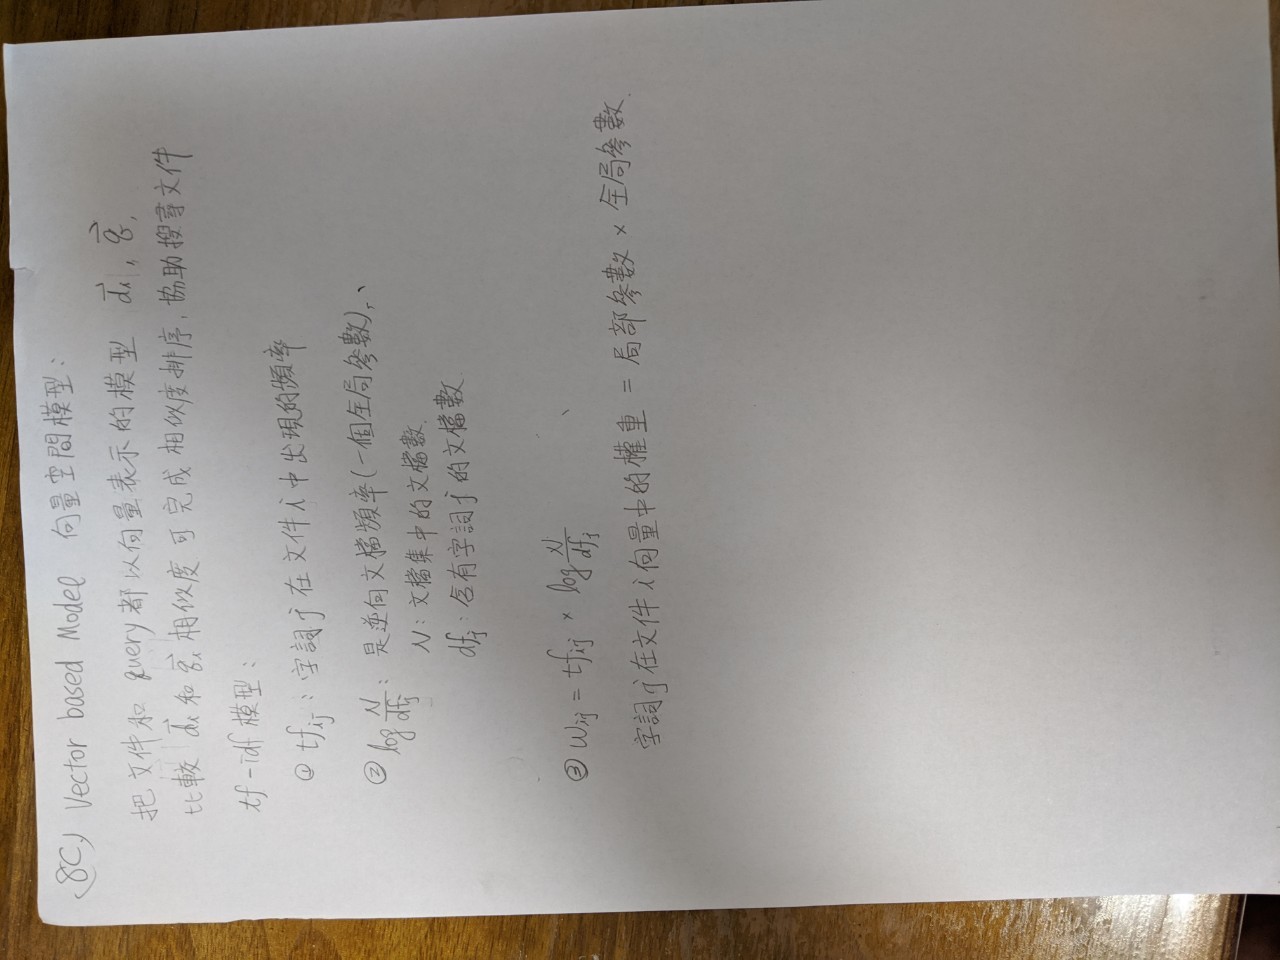 (8C) Vector based Model 向量空間模型:
把文件和 query 都以向量表示的模型 d⃗i, q⃗,
比較 d⃗i 和 q⃗i 相似度可完成相似度排序, 協助搜尋文件
tf-idf 模型:
① tfij : 字詞 j 在文件 i 中出現的頻率
② log N/dfj : 是逆向文檔頻率(一個全局參數),
N: 文檔集中的文檔數.
dfj : 含有字詞 j 的文檔數.
③ wij = tfij × log N/dfj
字詞 j 在文件 i 向量中的權重 = 局部參數 × 全局參數.